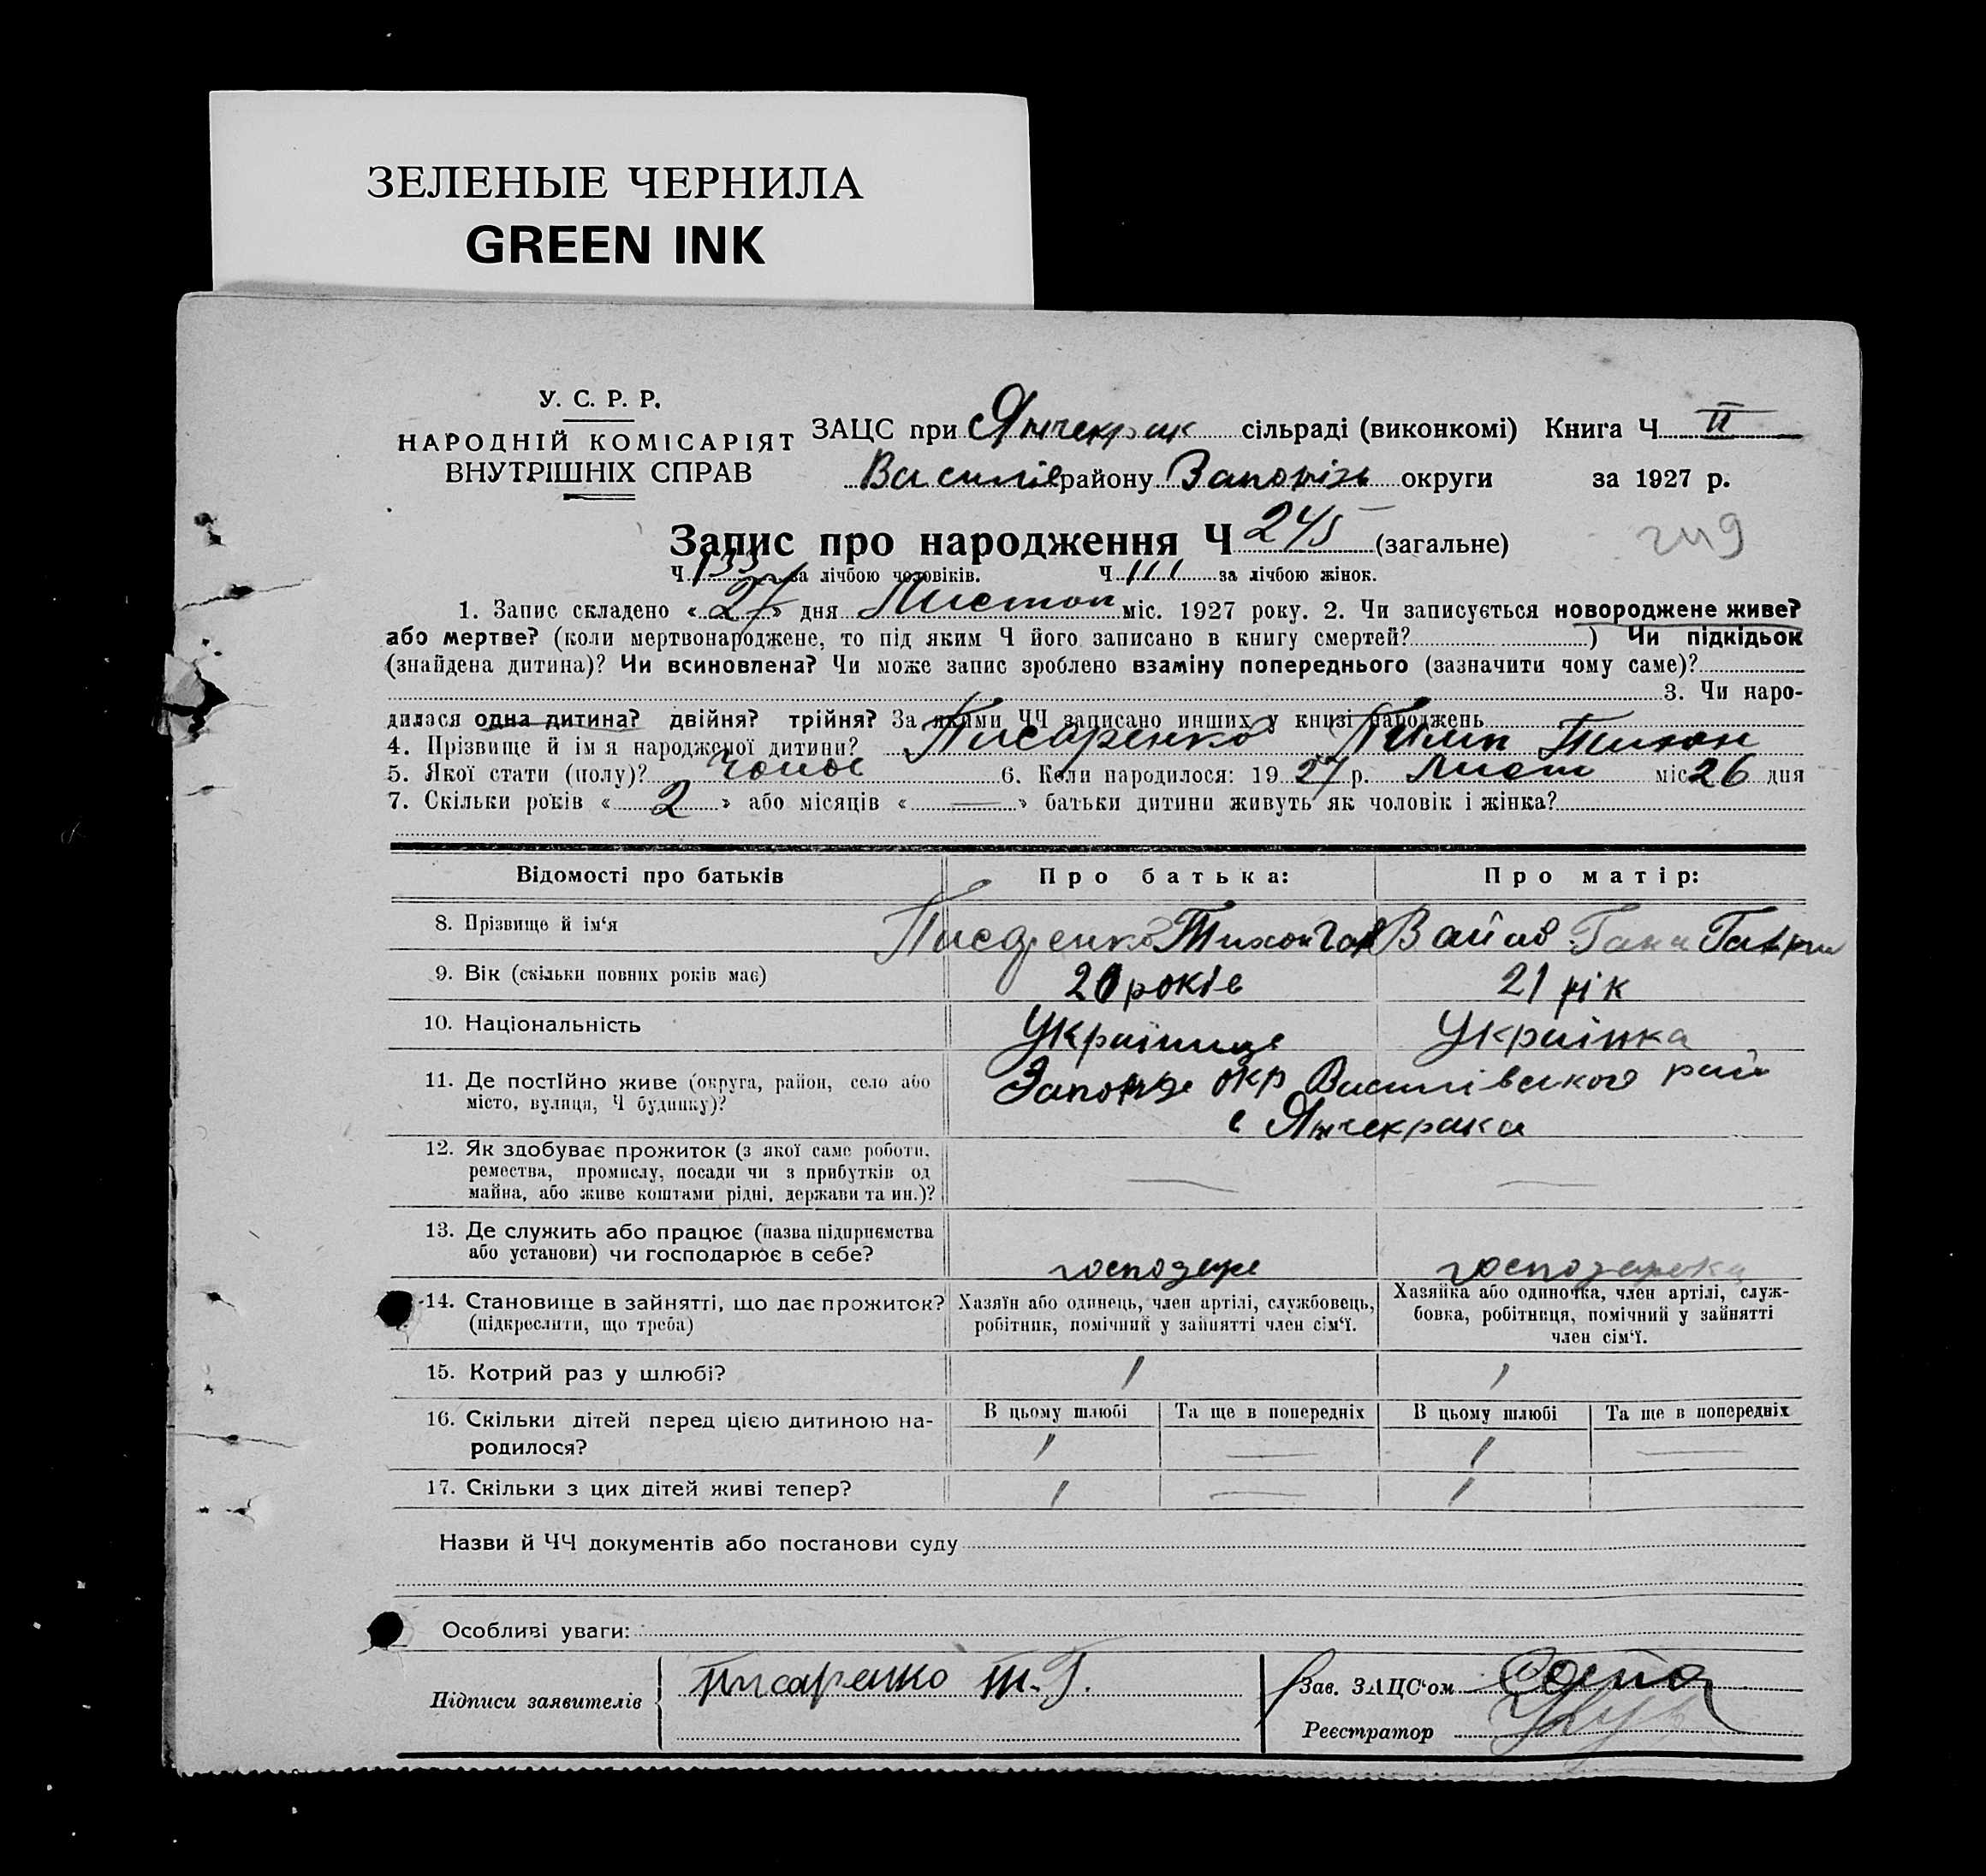 ЗЕЛЕНЫЕ ЧЕРНИЛА
GREEN INK
У. С. Р. Р.
НАРОДНІЙ КОМІСАРІЯТ
ВНУТРІШНІХ СПРАВ
ЗАЦС при Янчекрак сільраді (виконкомі) Книга Ч II
Василів району Запоріз округи за 1927 р.
Запис про народження Ч 245 (загальне)
249
Ч 133 за лічбою чоловіків. Ч 111 за лічбою жінок.
1. Запис складено « 27 » дня Листоп міс. 1927 року. 2. Чи записується новороджене живе?
або мертве? (коли мертвонароджене, то під яким Ч його записано в книгу смертей? ) Чи підкідьок
(знайдена дитина)? Чи всиновлена? Чи може запис зроблено взаміну попереднього (зазначити чому саме)?
3. Чи наро-
дилася одна дитина? двійня? трійня? За якими ЧЧ записано инших у книзі народжень
4. Прізвище й ім я народженої дитини? Писаренко Пилип Тихон
5. Якої стати (полу)? Чолов 6. Коли народилося: 19 27 р. Лист міс 26 дня
7. Скільки років « 2 » або місяців « — » батьки дитини живуть як чоловік і жінка?
Відомості про батьків Про батька: Про матір:
8. Прізвище й ім‘я Писаренко Тихон Гав Гана Гаври
9. Вік (скільки повних років має) 20 років 21 рік
10. Національність Українець Українка
11. Де постійно живе (округа, район, село або Запоріз окр Василівського рай
місто, вулиця, Ч будинку)? с Янчекрака
12. Як здобуває прожиток (з якої саме роботи,
ремества, промислу, посади чи з прибутків од
майна, або живе коштами рідні, держави та ин.)? — —
13. Де служить або працює (назва підприємства
або установи) чи господарює в себе? господарь господарка
14. Становище в зайнятті, що дає прожиток? Хазяїн або одинець, член артілі, службовець, Хазяйка або одиночка, член артілі, служ-
(підкреслити, що треба) робітник, помічний у зайнятті член сім‘ї. бовка, робітниця, помічний у зайнятті
член сім‘ї.
15. Котрий раз у шлюбі? 1 1
16. Скільки дітей перед цією дитиною на- В цьому шлюбі Та ще в попередніх В цьому шлюбі Та ще в попередніх
родилося? 1 — 1 —
17. Скільки з цих дітей живі тепер? 1 — 1
Назви й ЧЧ документів або постанови суду
Особливі уваги:
Підписи заявителів Писаренко Т. Г. Зав. ЗАЦС‘ом
Реєстратор